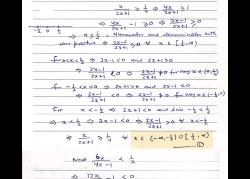 x/(2x+1) ≥ 1/4 ⇒ 4x/(2x+1) ≥ 1
⇒ 4x/(2x+1) − 1 ≥ 0 ⇒ (2x−1)/(2x+1) ≥ 0
−1/2 0 1/2
⇒ x ≥ 1/2, Numerator and denominator both
are positive ⇒ (2x−1)/(2x+1) ≥ 0 ∀ x ∈ [1/2, ∞)
for 0<x<1/2 ⇒ 2x−1<0 and 2x+1>0
⇒ (2x−1)/(2x+1) <0 ⇒ (2x−1)/(2x+1) ≱ 0 for any x ∈ (0, 1/2)
for −1/2<x<0 ⇒ 2x+1>0 and 2x−1<0
⇒ (2x−1)/(2x+1) <0 ⇒ (2x−1)/(2x+1) ≱ 0 for
For x<−1/2 ⇒ 2x+1<0 and since −1/2<1/2
⇒ x<1/2 ⇒ 2x−1<0 ⇒ (2x−1)/(2x+1) >0 ∀ x<−1/2
⇒ x/(2x+1) ≥ 1/4 ∀ x ∈ (−∞, −1/2) ∪ [1/2, ∞)
①
Next 6x/(4x−1) < 1/2
⇒ 12x −1 <0